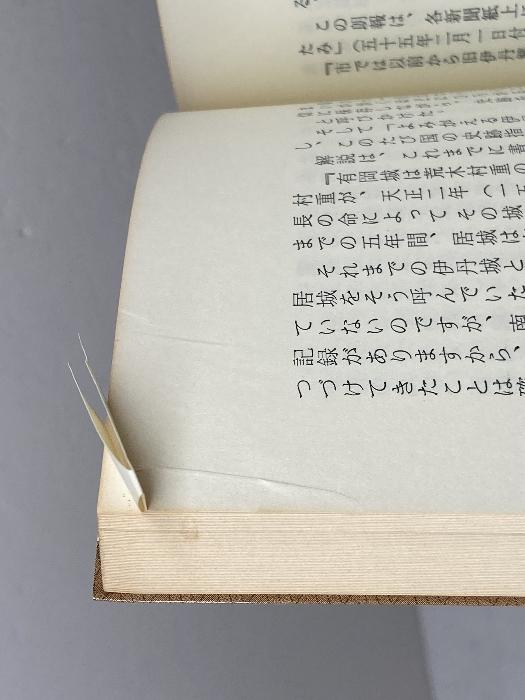 この朗報は、各新聞紙上に
たみ」(五十五年二月一日付
『市では以前から旧伊丹
と呼びかけた。
そして「よみがえる伊
し、このたび国の史跡指
解説は、これまでに書
『有岡城は荒木村重の
村重が、天正二年(一五
長の命によってその城
までの五年間、居城は
それまでの伊丹城と
居城をそう呼んでいた
ていないのですが、南
記録がありますから、
つづけてきたことは確